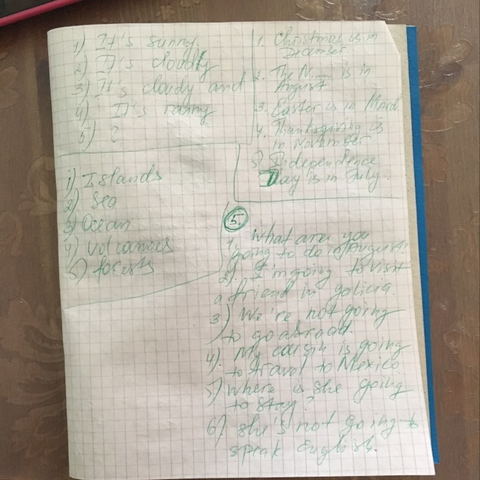 1) It's sunny
2) It's cloudy
3) It's cloudy and
4) It's rainy
5) ?
1. Christmas is in
December
2. The N... is in
August
3. Easter is in March
4. Thanksgiving is
in November
5) Independence
Day is in July.
1) Islands
2) Sea
3) Ocean
4) volcanoes
5) forests
5.
1. What are you
going to do in August?
2). I'm going to visit
a friend in galicia
3) We're not going
to go abroad.
4). My cousin is going
to travel to Mexico
5) Where is she going
to stay?
6) she's not going to
speak English.